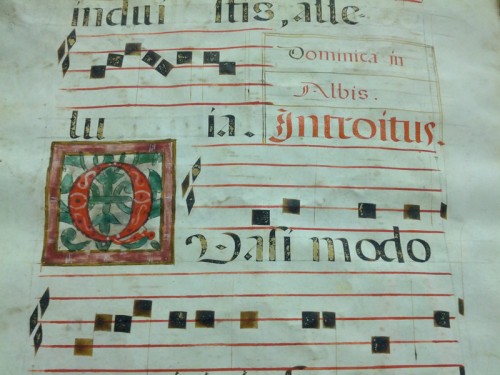 indui stis, alle-
Dominica in
Albis.
lu ia. Introitus.
QVasi modo